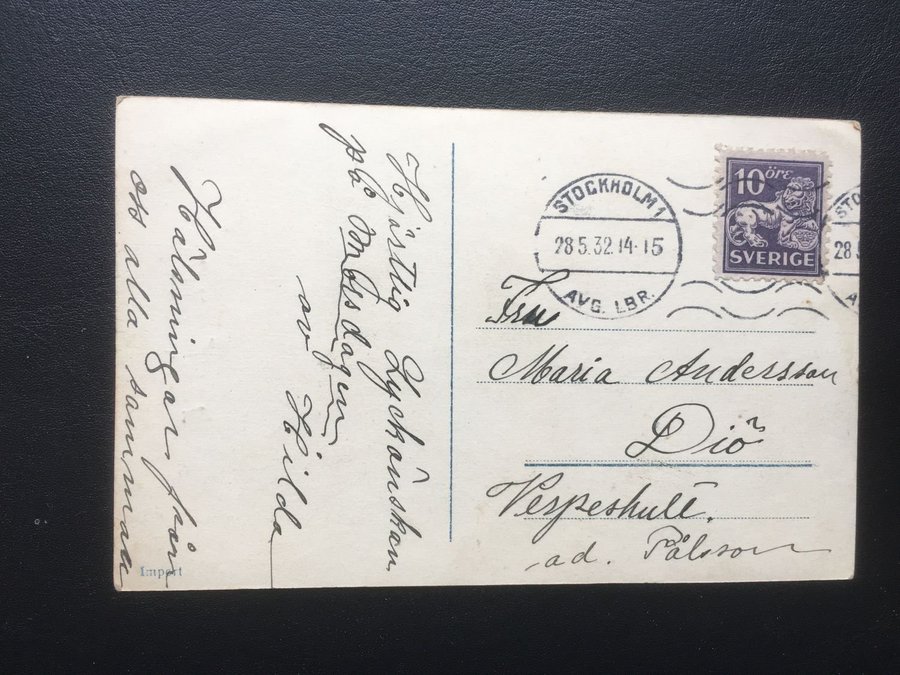 Hjärtlig Lyckönskan
på Morsdagen
av Hilda
Hälsningar från
oss alla samma
Import
STOCKHOLM 1
28 5. 32. 14-15
AVG. LBR.
10 ÖRE
SVERIGE
STO
28 5
A
Fru
Maria Andersson
Diö
Vespeshult.
ad. Pålsson